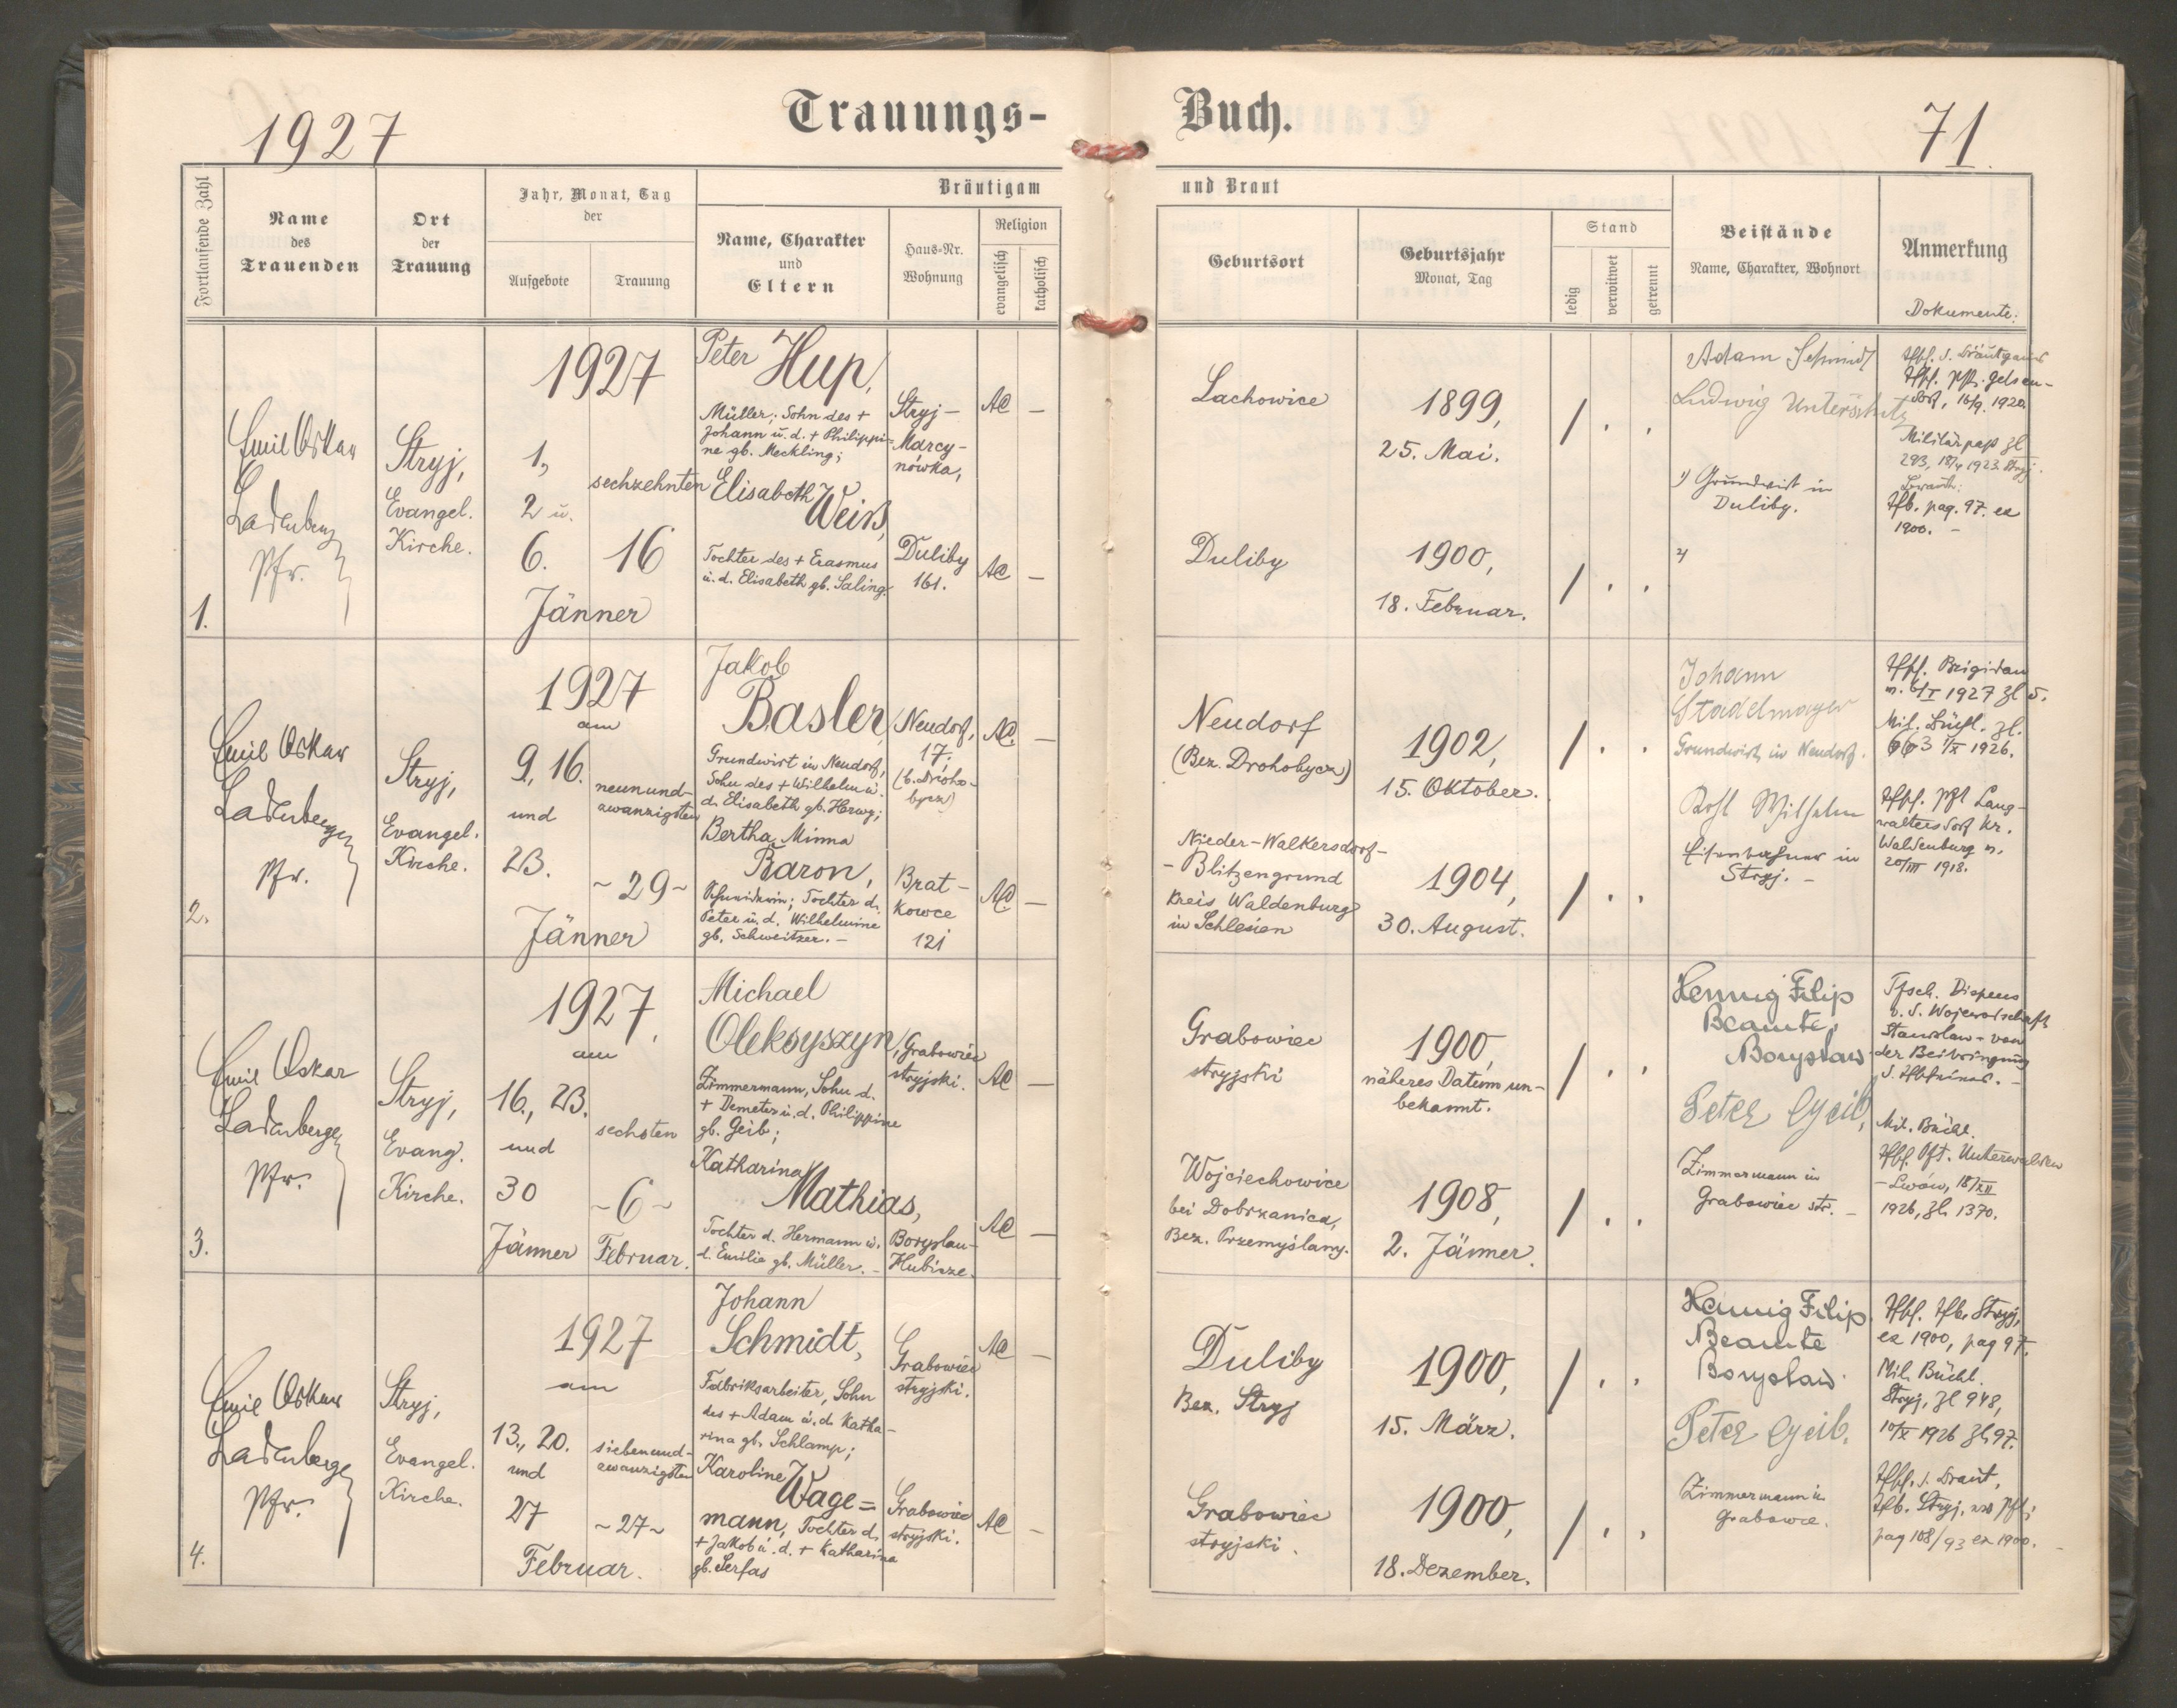 1927
Trauungs-
Buch.
71.
Fortlaufende Zahl
Name
des
Trauenden
Ort
der
Trauung
Jahr, Monat, Tag
der
Aufgebote
Trauung
Bräutigam
Name, Charakter
und
Eltern
Haus-Nr.
Wohnung
Religion
evangelisch
katholisch
und Braut
Geburtsort
Geburtsjahr
Monat, Tag
Stand
ledig
verwitwet
getrennt
Beistände
Name, Charakter, Wohnort
Anmerkung
Dokumente:
1.
Emil Oskar
Ladenberger
Pfr.
Stryj,
Evangel.
Kirche.
1927
1,
2 u.
6.
sechzehnten
16
Jänner
Peter Hup,
Müller; Sohn des +
Johann u. d. + Philippi=
ne gb. Meckling;
Elisabeth
Weiß,
Tochter des + Erasmus
u. d. Elisabeth gb. Saling.
Stryj-
Marcy-
nówka,
Duliby
161.
AC -
AC -
Lachowice
Duliby
1899,
25. Mai.
1900,
18. Februar.
/ . .
/ . .
Adam Schmidt
Ludwig Unterschütz
1) Grundwirt in
Duliby.
2)
Tfsch. d. Bräutigams
Gelsen-
dorf, 16/9. 1920.
Militärpass Zl
293, 1923. Stryj.
Braut:
Tfb. pag. 97. ex
1900. -
2.
Emil Oskar
Ladenberger
Pfr.
Stryj,
Evangel.
Kirche.
1927
am
9., 16.
und
23.
neunund-
zwanzigsten
~ 29 ~
Jänner
Jakob
Basler,
Grundwirt in Neudorf,
Sohn des + Wilhelm u.
d. Elisabeth gb. Herwy;
Bertha Minna
Baron,
Tochter d.
Peter u. d. Wilhelmine
gb. Schweitzer. -
Neudorf,
17,
(b. Droho-
bycz)
Brat-
kowce
121
AC. -
AC -
Neudorf
(Bez. Drohobycz)
Nieder-Walkersdorf-
- Blitzengrund
Kreis Waldenburg
in Schlesien
1902,
15. Oktober.
1904,
30. August.
/ . .
/ . .
Johann
Stadelmayer
Grundwirt in Neudorf.
Wilhelm
Eisenbahner in
Stryj. -
Brigidau
1927 Zl 5.
Mil. Büchl. Zl.
1926.
Lang-
waltersdorf Kr.
Waldenburg v.
20/III 1918.
3.
Emil Oskar
Ladenberger
Pfr.
Stryj,
Evang.
Kirche.
1927.
am
16., 23.
und
30
Jänner
sechsten
~ 6 ~
Februar.
Michael
Oleksyszyn,
Zimmermann, Sohn d.
+ Demeter u. d. Philippine
gb. Geib;
Katharina
Mathias,
Tochter d. Hermann u.
d. Emilie gb. Müller. -
Grabowiec
stryjski.
Boryslau-
Hubicze.
AC -
AC -
Grabowiec
stryjski
Wojciechowice
bei Dobrzanica,
Bez. Przemyślany.
1900,
näheres Datum un-
bekannt.
1908,
2. Jänner.
/ . .
/ . .
Hennig Filip
Beamte,
Borysław
Peter Geib,
Zimmermann in
Grabowiec str. -
Dispens
v. d. Wojewodschaft
Stanislau - von
der Beibringung
d. -
Mil. Büchl.
Unterwalden
- Lwów, 18/XII
1926, Zl. 1370.
4.
Emil Oskar
Ladenberger
Pfr.
Stryj,
Evangel.
Kirche.
1927
am
13., 20.
und
27
siebenund-
zwanzigsten
~ 27 ~
Februar.
Johann
Schmidt,
Fabriksarbeiter, Sohn
des + Adam u. d. Katha-
rina gb. Schlamp;
Karoline Wage=
mann, Tochter d.
+ Jakob u. d. + Katharina
gb. Serfas
Grabowiec
stryjski.
Grabowiec
stryjski.
AC -
AC -
Duliby
Bez. Stryj
Grabowiec
stryjski.
1900,
15. März.
1900,
18. Dezember.
/ . .
/ . .
Hennig Filip
Beamte
Borysław.
Peter Geib.
Zimmermann in
Grabowce.
Stryj,
ex 1900, pag 97.
Mil. Büchl.
Stryj, Zl 948,
10/X 1926 Zl 97.
d. Braut,
Tfb. Stryj,
pag 108/93 ex 1900. -